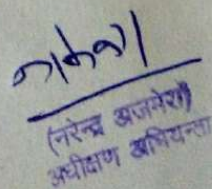 (नरेन्द्र अजमेरा)
अधीक्षण अभियन्ता